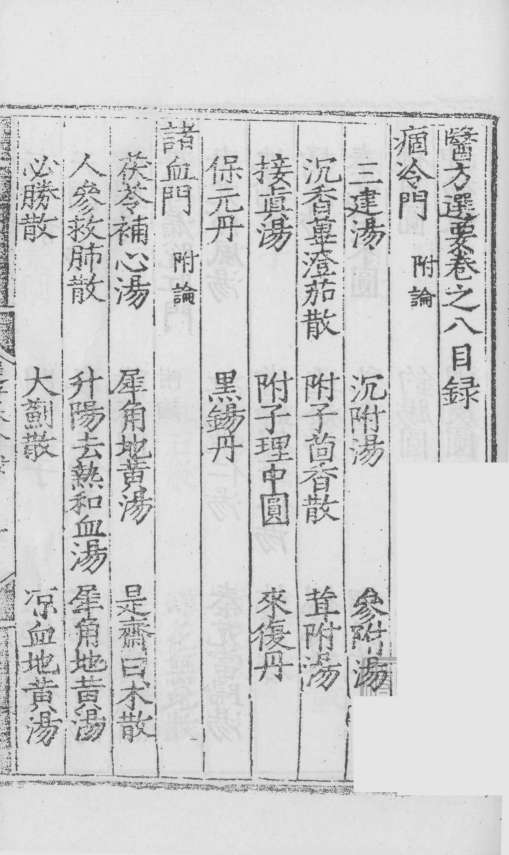 醫方選要卷之八目録
痼冷門 附論
三建湯 沉附湯 參附湯
沉香蓽澄茄散 附子茴香散 茸附湯
接眞湯 附子理中圓 來復丹
保元丹 黒錫丹
諸血門 附論
茯苓補心湯 犀角地黄湯 是齋白朮散
人參救肺散 升陽去熱和血湯 犀角地黄湯
必勝散 大薊散 凉血地黄湯